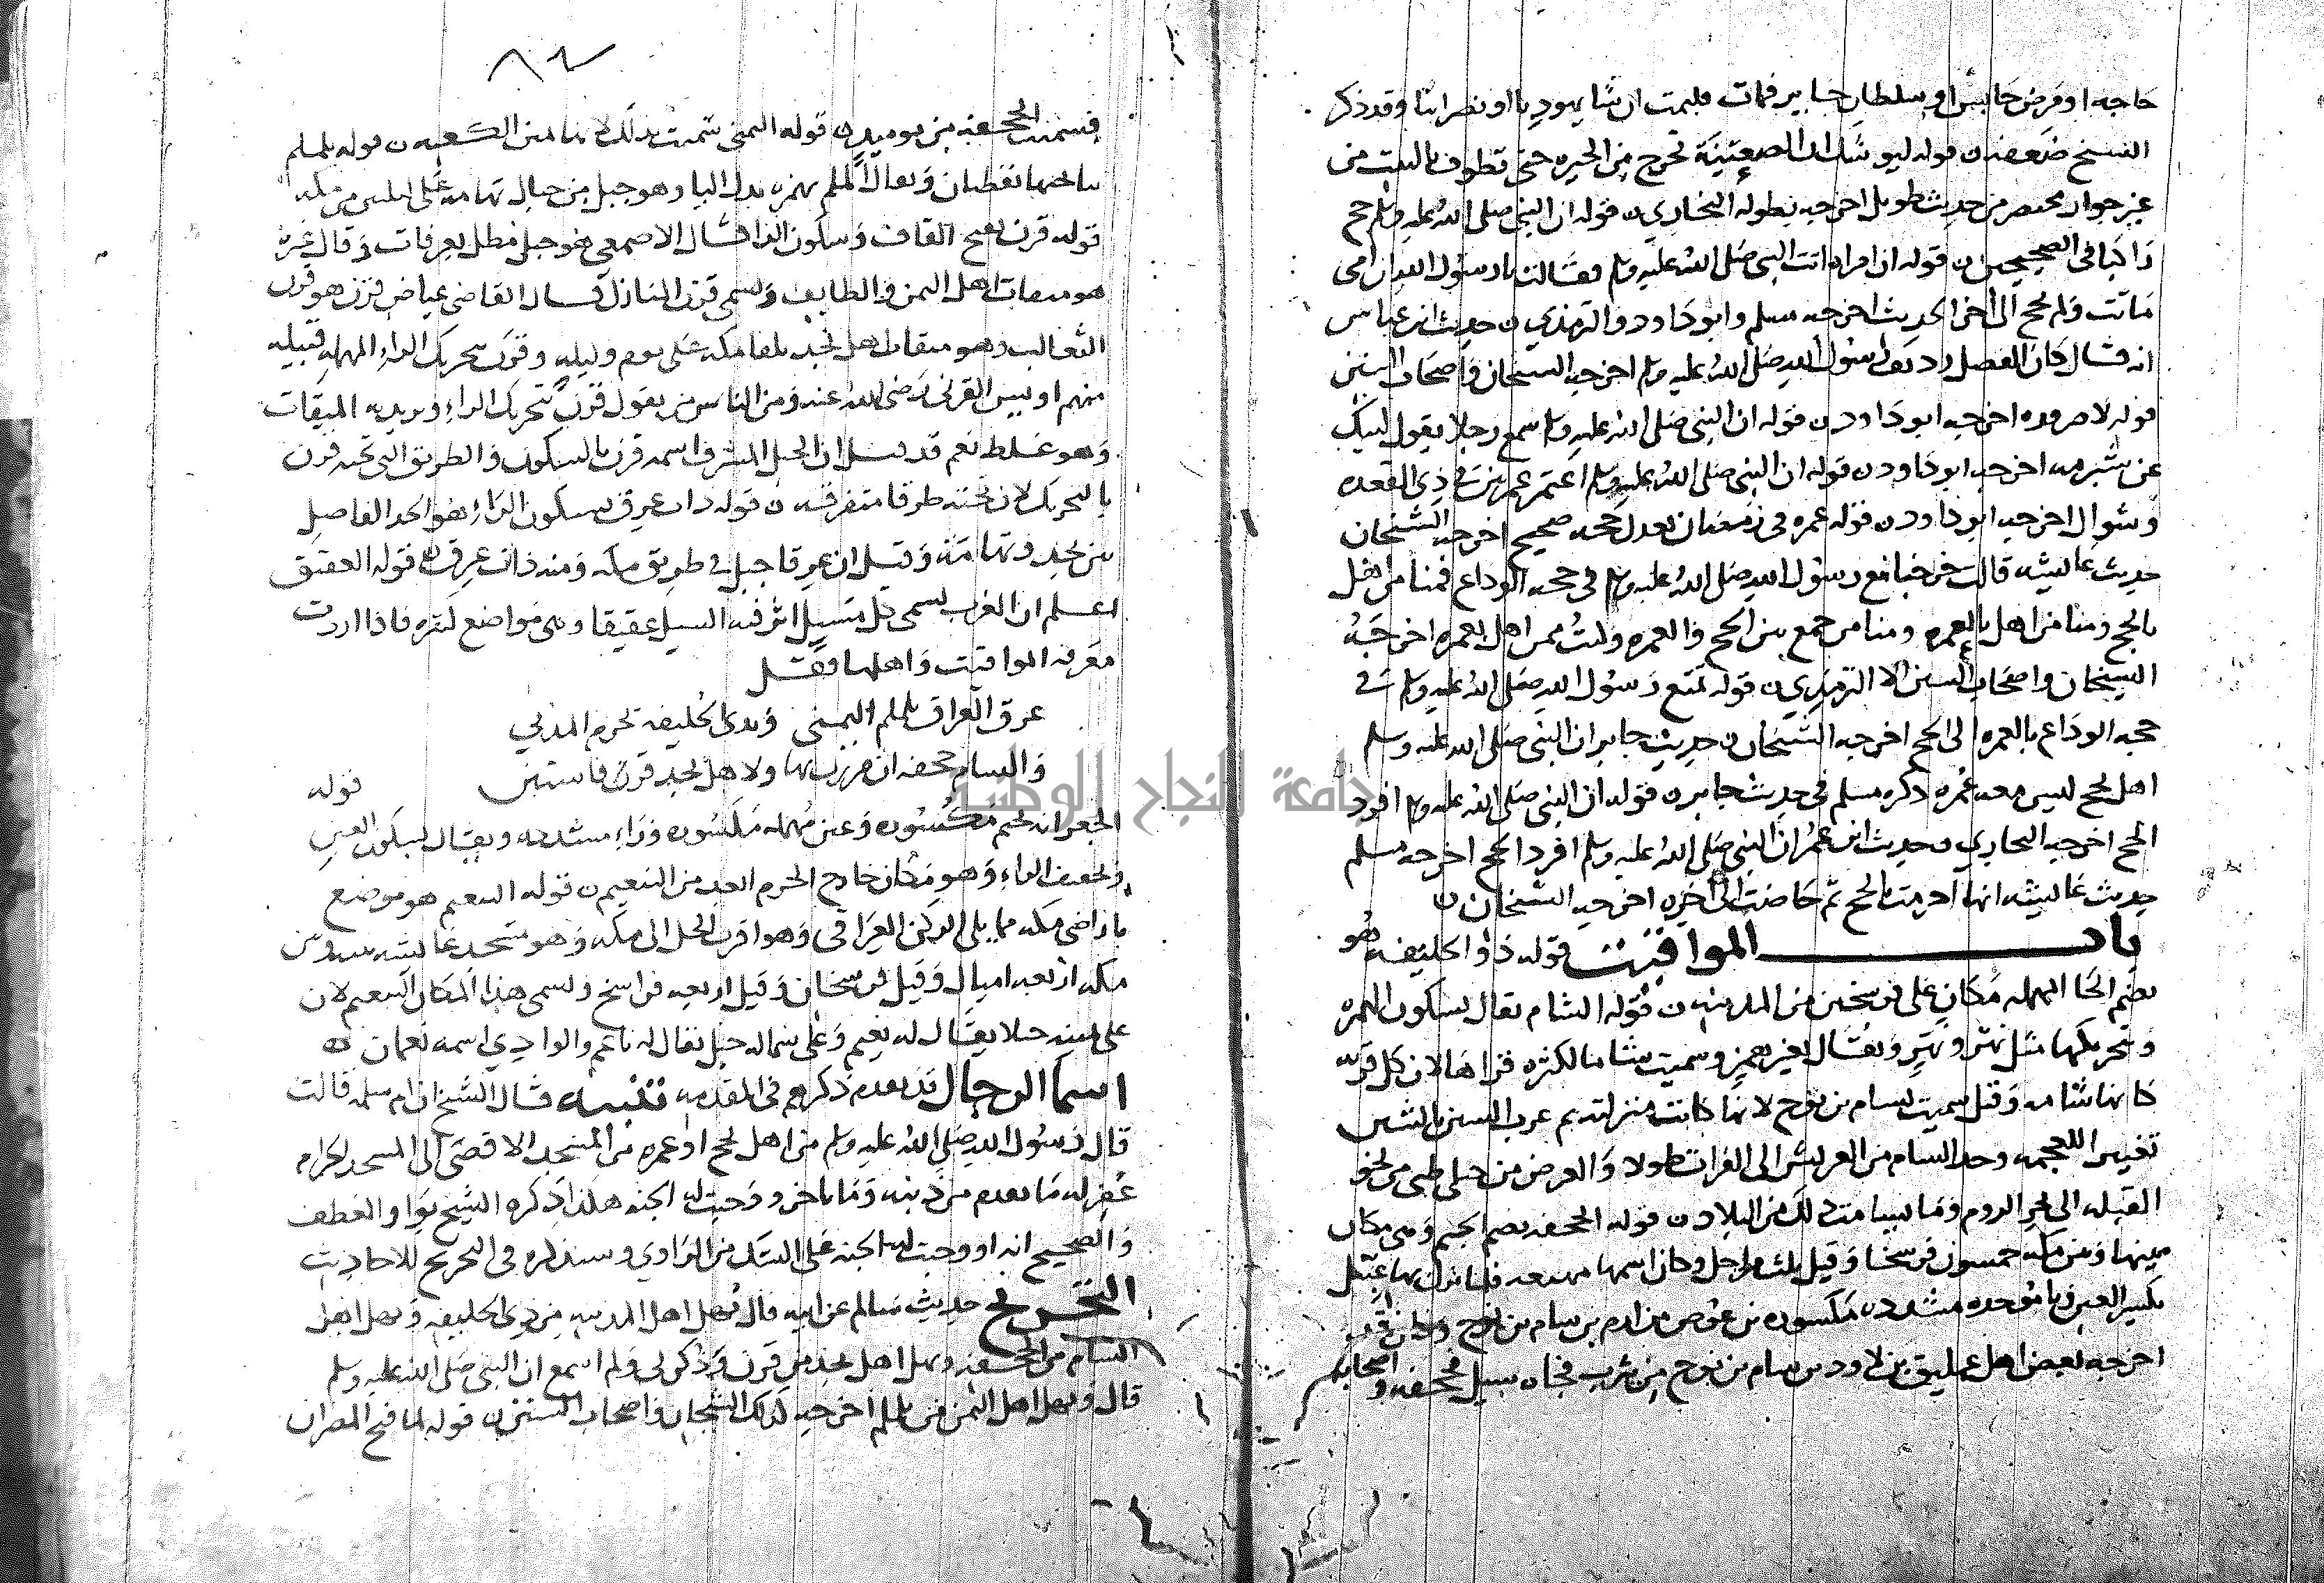 حاجه او مرض حابس او سلطان جاير فمات فليمت ان شا يهوديا او نصرانيا وقد ذكر
الشيخ ضعفه ن قوله ليوشك ان الضعينة تخرج من الحيره حتى تطوف بالبيت من
غير جوار مختصر من حديث طويل اخرجه بطوله البخاري ن قوله ان النبي صلى الله عليه وسلم حج
راكبا في الصحيحين ن قوله ان امراه اتت النبي صلى الله عليه وسلم فقالت يا رسول الله ان امي
ماتت ولم تحج الى اخر الحديث اخرجه مسلم وابو داود والترمذي ن حديث ابن عباس
انه قال كان الفضل رديف رسول الله صلى الله عليه وسلم اخرجه الشيخان واصحاب السنن
قوله لا صروره اخرجه ابو داود ن قوله ان النبي صلى الله عليه وسلم سمع رجلا يقول لبيك
عن شبرمه اخرجه ابو داود ن قوله ان النبي صلى الله عليه وسلم اعتمر عمرتين في ذي القعده
وشوال اخرجه ابو داود ن قوله عمره في رمضان تعدل حجه صحيح اخرجه الشيخان
حديث عايشه قالت خرجنا مع رسول الله صلى الله عليه وسلم في حجه الوداع فمنا من اهل
بالحج ومنا من اهل بالعمره ومنا من جمع بين الحج والعمره وكنت ممن اهل بعمره اخرجه
الشيخان واصحاب السنن الا الترمذي ن قوله تمتع رسول الله صلى الله عليه وسلم في
حجه الوداع بالعمره الى الحج اخرجه الشيخان ن حديث جابر ان النبي صلى الله عليه وسلم
اهل بحج ليس معه عمره ذكره مسلم في حديث جابر ن قوله ان النبي صلى الله عليه وسلم افرد
الحج اخرجه البخاري وحديث ابن عمر ان النبي صلى الله عليه وسلم افرد الحج اخرجه مسلم
حديث عايشه انها احرمت بالحج ثم حاضت الى اخره اخرجه الشيخان ن
باب المواقيت قوله ذو الحليفه هو
بضم الحا المهمله مكان على فرسخين من المدينه ن قوله الشام يقال بسكون الهمزه
وتحريكها مثل نهر ونهر ويقال بغير همز وسميت شاما لكثره قراها لان كل قريه
كانها شامه وقيل سميت بسام بن نوح لانها كانت منزلته ثم عرب السين بالشين
تغيير اللعجمه وحد الشام من العريش الى الفرات طولا والعرض من جبلي طي من نحو
القبله الى بحر الروم وما يسامت ذلك من البلاد ن قوله الجحفه بضم الجيم وهي مكان
بينها وبين مكه خمسون فرسخا وقيل ثلث مراحل وكان اسمها مهيعه فلما نزل بها عبيل
بكسر العين وبا موحده مشدده مكسوره بن عوص من ارم بن سام بن نوح وكان قد
اخرجه بعض اهل عمليق بن لاود بن سام بن نوح من يثرب فجاه سيل فجحفه واصحابه
فسميت الجحفه من يوميذ ن قوله اليمني سميت بذلك لانها من يمين الكعبه ن قوله يلملم
بيا تحتها نقطتان ويقال الملم بهمزه بدل اليا وهو جبل من جبال تهامه على ليلتين من مكه
قوله قرن بفتح القاف وسكون الرا قال الاصمعي هو جبل مطل بعرفات وقال غيره
هو ميقات اهل اليمن والطايف وتسمى قرن المنازل قال القاضي عياض قرن هو قرن
الثعالب وهو ميقات اهل نجد تلقا مكه على يوم وليله وقرن بتحريك الراء المهمله قبيله
منهم اويس القرني رضي الله عنه ومن الناس من يقول قرن بتحريك الراء ويريد به الميقات
وهو غلط نعم قد قيل ان الجبل المشرف اسمه قرن بالسكون والطريق التي تحته قرن
بالتحريك لان تحته طرقا متفرقه ن قوله ذات عرق بسكون الراء هو الحد الفاصل
بين نجد وتهامة وقيل ان عرقا جبل في طريق مكه ومنه ذات عرق ن قوله العقيق
اعلم ان العرب تسمي كل مسيل اثر فيه السيل عقيقا وهي مواضع كثيره فاذا اردت
معرفه المواقيت واهلها فقل
عرق العراق يلملم اليمني وبذي الحليفه تحرم المدني
والشام جحفه ان مررت بها ولاهل نجد قرن فاستبن قوله
الجعرانه بجيم مكسوره وعين مهمله مكسوره وراء مشدده ويقال بسكون العين
وتخفيف الراء وهو مكان خارج الحرم ابعد من التنعيم ن قوله التنعيم هو موضع
باراضي مكه مما يلي الركن العراقي وهو اقرب الحل الى مكه وهو مسجد عايشه بينه وبين
مكه اربعه اميال وقيل فرسخان وقيل اربعه فراسخ ويسمى هذا المكان التنعيم لان
على يمينه جبلا يقال له نعيم وعلى شماله جبل يقال له ناعم والوادي اسمه نعمان ن
اسما الرجال قد تقدم ذكرهم في المقدمه تنبيه قال الشيخ ان ام سلمه قالت
قال رسول الله صلى الله عليه وسلم من اهل بحج او عمره من المسجد الاقصى الى المسجد الحرام
غفر له ما تقدم من ذنبه وما تاخر ووجبت له الجنه هكذا ذكره الشيخ بواو العطف
والصحيح انه او وجبت له الجنه على الشك من الراوي وسنذكره في التخريج للاحاديث
التخريج حديث سالم عن ابيه قال يهل اهل المدينه من ذي الحليفه ويهل اهل
الشام من الجحفه ويهل اهل نجد من قرن وذكر لي ولم اسمع ان النبي صلى الله عليه وسلم
قال ويهل اهل اليمن من يلملم اخرجه كذلك الشيخان واصحاب السنن ن قوله لما فتح المصران
جامعة النجاح الوطنية